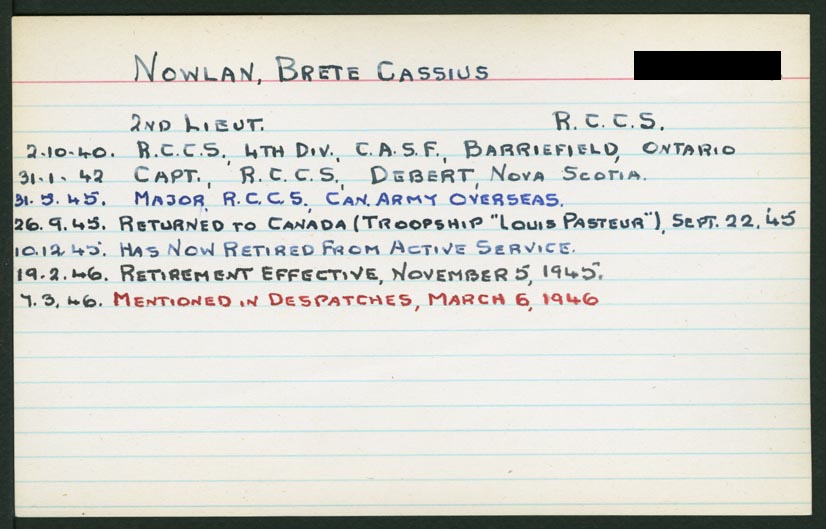 NOWLAN, BRETE CASSIUS
2ND LIEUT. R.C.C.S.
2.10.40. R.C.C.S., 4TH DIV., C.A.S.F., BARRIEFIELD, ONTARIO
31.1.42 CAPT., R.C.C.S., DEBERT, NOVA SCOTIA.
31.5.45. MAJOR, R.C.C.S., CAN. ARMY OVERSEAS.
26.9.45. RETURNED TO CANADA (TROOPSHIP "LOUIS PASTEUR"), SEPT. 22, '45
10.12.45. HAS NOW RETIRED FROM ACTIVE SERVICE.
19.2.46. RETIREMENT EFFECTIVE, NOVEMBER 5, 1945.
7.3.46. MENTIONED IN DESPATCHES, MARCH 6, 1946